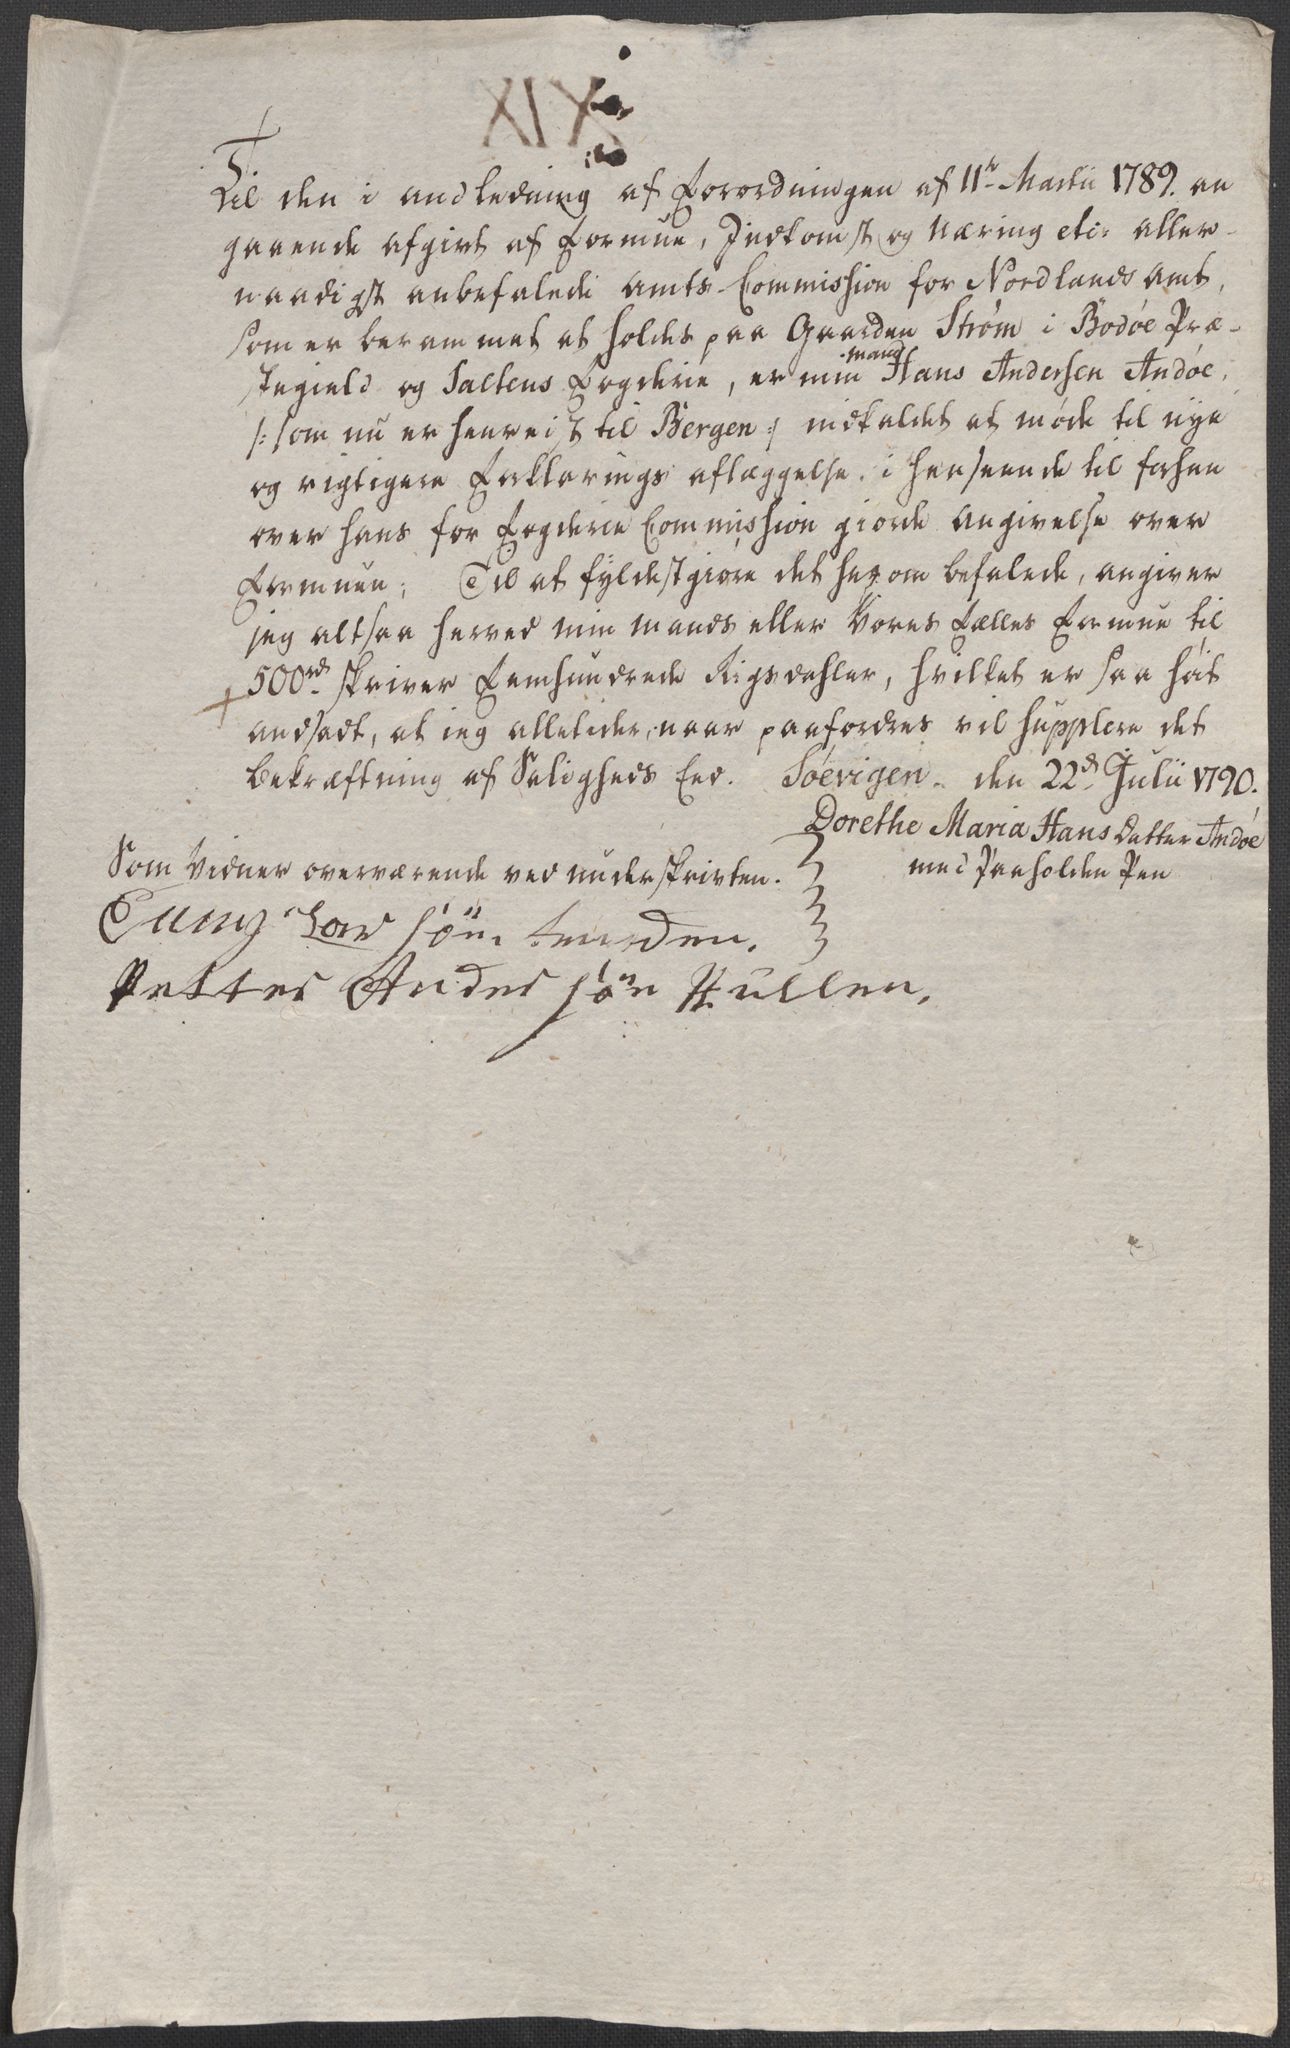 XIX
Til den i andledning af Forordningen af 11te Martii 1789. an
gaaende afgivt af Formue, Indkomst og Næring etc: aller-
naadigst anbefalede Amts-Commission for Nordlands amt,
som er berammet at holdes paa Gaarden Strøm i Bodøe Præ-
stegield og Saltens Fogderie, er min mand Hans Andersen Andøe,
/: som nu er henreist til Bergen :/ indkaldet at møde til nye
og rigtigere Erklærings aflæggelse, i henseende til forhen
over hans for Fogderie Commission giorde angivelse over
Formuen; Til at fyldestgiøre det herom befalede, angiver
jeg altsaa herved min mands eller Vores Fælles Formue til
500rd skriver Femhundrede Rigsdahler, hvilket er saa høit
andsadt, at ieg alletider, naar paafordres vil supplere det
bekræftning af Saligheds Eed. Søevigen den 22d Julii 1790.
Dorethe Maria Hans Datter Andøe
Som Vidner overværende ved underskrivten. med Paaholden Pen
Lar søn
Petter Anders søn Hullen.